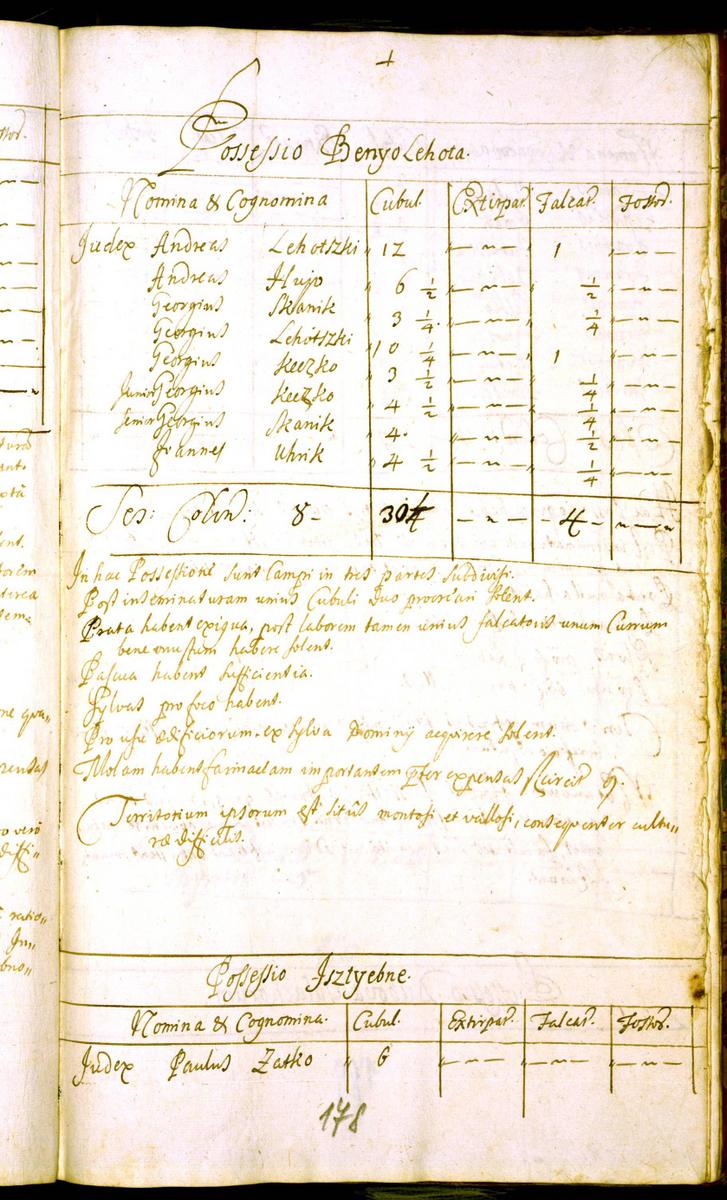 Possessio Benyo Lehota.
Nomina & Cognomina Cubul. Extirpat. Falcat. Fossor.
Judex Andreas Lehotszki " 12 "—"— " 1 "—"—
Andreas Hujo " 6 1/2 "—"— " 1/2 "—"—
Georgius Skanik " 3 1/4 "—"— " 1/4 "—"—
Georgius Lehotszki " 0 1/4 "—"— " 1 "—"—
Georgius Keczko " 3 1/2 "—"— " 1/4 "—"—
Junior Georgius Keczko " 4 1/2 "—"— " 1/4 "—"—
Senior Georgius Skanik " 4 "—"— " 1/2 "—"—
Joannes Uhrik " 4 1/2 "—"— " 1/4 "—"—
Ses: Colon. 8- —"— 4- —"—
In hac Possessione sunt Campi in tres partes subdivisi.
Post inseminaturam unius Cubuli duo procreari solent.
Prata habent exiqua, post laborem tamen unius falcatoris unum Currum
bene onustum habere solent.
Pascua habent sufficientia.
Sylvas pro foco habent.
Pro usu ædificiorum ex sylva Dominij acquirere solent.
Molam habent farinaceam importantem præter expensas
Territorium ipsorum est sitûs montosi et vallosi, consequenter cultu„
ræ difficilis.
Possessio Isztyebne.
Nomina & Cognomina. Cubul. Extirpat. Falcat. Fossor.
Judex Paulus Zatko " 6 "—"— "—"— "—"—
178